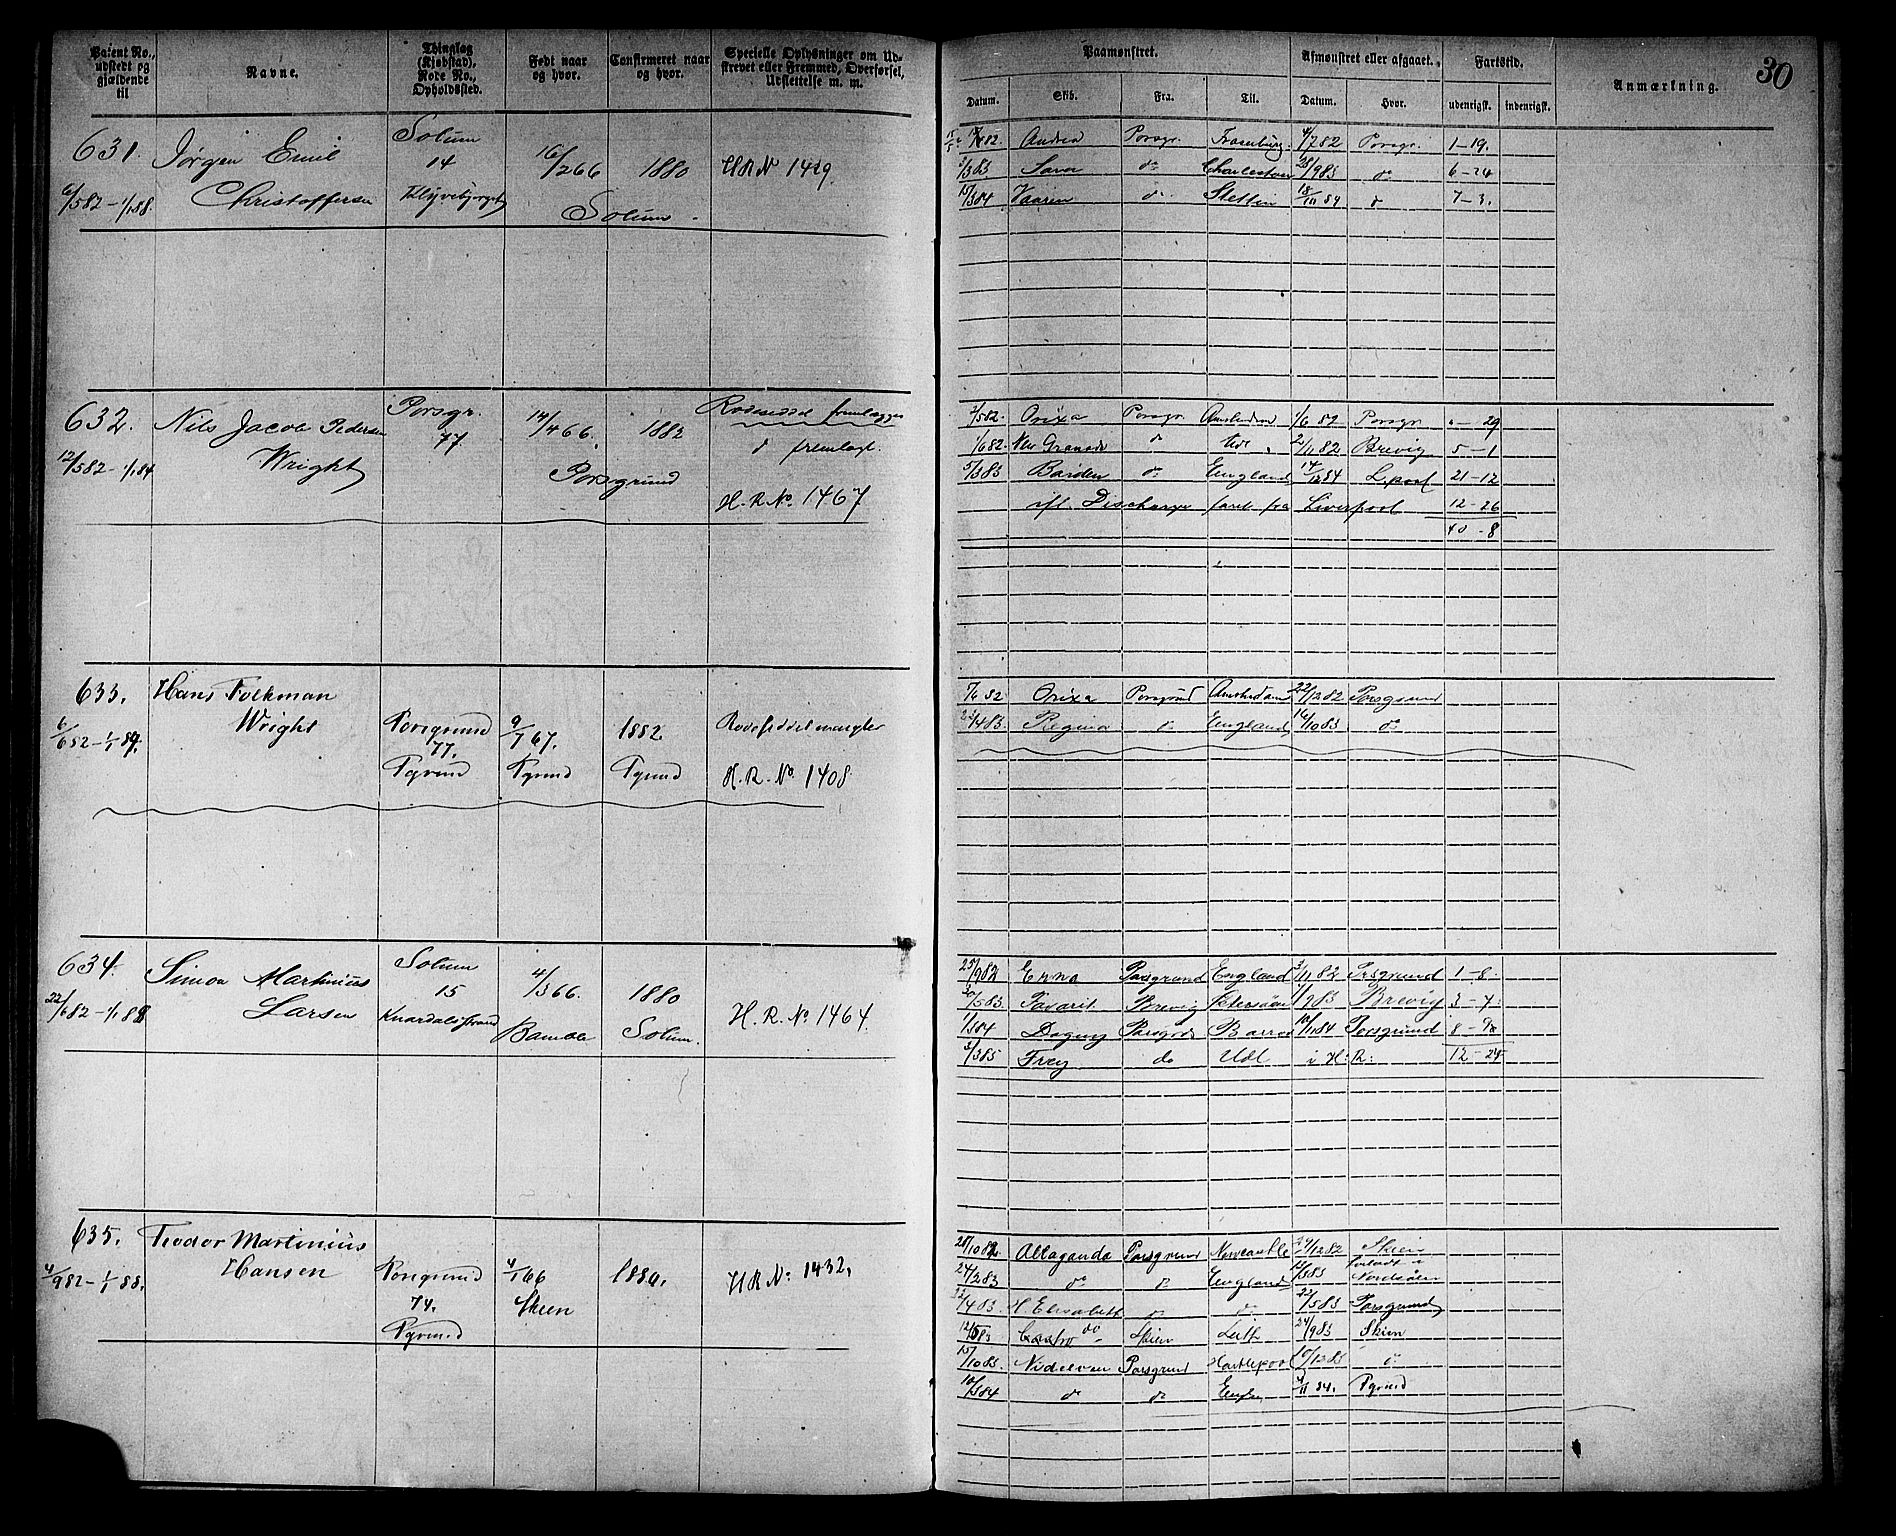 30
Patent No., udstedt og gjældende til
Navne.
Thinglag (Kjøbstad). Rode No., Opholdssted.
Født naar og hvor.
Confirmeret naar og hvor.
Specielle Oplysninger om Udskrevet eller Fremmed, Overførsel, Udslettelse m. m.
Paamønstret.
Afmønstret eller afgaaet.
Fartstid.
Anmærkning.
Datum. Skib. Fra. Til. Datum. Hvor. udenrigsk. indenrigsk.
631. Jørgen Emil Christoffersen
6/5 82 - 1/1 88.
Solum 14 Klyvebjerget
16/2 66 1880 Solum.
HR No 1429.
Andrea Porsgr. 4/7 82 Porsgr. 1-19.
do Charlestown 28/9 83 do 6-24
15/3 84 Vaaren do Stettin 18/11 84 do 7-3.
632. Nils Jacob Pedersen Wright
12/5 82 - 1/1 84
Porsgr. 77
14/4 66. 1882 Porsgrund
Rodeseddel fremlægges
do fremlagt.
H. R. No. 1467
Orixa Porsgr. Amsterdam 1/6 82 Porsgr. " - 29
1/6 82 New Granada do Udl. 2/11 82 Brevig 5-1
5/3 83 Barden do England 14/12 84 L.pool 21-12
ifl. Discharge faret fra Liverpool 12-26
40-8
633. Hans Folkman Wright
6/6 82 - 1/1 89.
Porsgrund 77. Pgrund
9/7 67. Pgrund
1882. Pgrund
Rodeseddel mangler
H. R. No. 1408.
7/6 82 Orixa Porsgrund Amsterdam 22/12 82 Porsgrund
Regina do England 14/10 83 do
634. Simon Martinius Larsen
22/6 82 - 1/1 88
Solum 15 Knardalsstrand
4/3 66. Bamble
1880 Solum.
H. R. No 1464.
25/9 82 Erna Porsgrund England 3/11 82 Porsgrund 1-8.
20/5 83 Favorit Brevig 1/9 83 Brevig 3-7.
1/3 84 Dagny Porsgrd. Barrow 10/11 84 Porsgrund
3/3 85 Frey do Udl i H: R: 12-24
635. Teodor Martinius Hansen
4/9 82 - 1/1 88.
Porsgrund 74. Pgrund
4/1 66 Skien
1880.
HR No: 1432.
28/10 82 Allaganda Porsgrund Newcastle 24/12 82 Skien
24/2 83 do do England forladt i Nordsøen
22/4 83 H. Elisabeth do do 22/5 83 Porsgrund
Castro do Skien Leith 24/9 83 Skien
15/10 83 Nidelven Porsgrund Hartlepool 10/12 83 do
10/3 84 do do 4/11 84. Pgrund